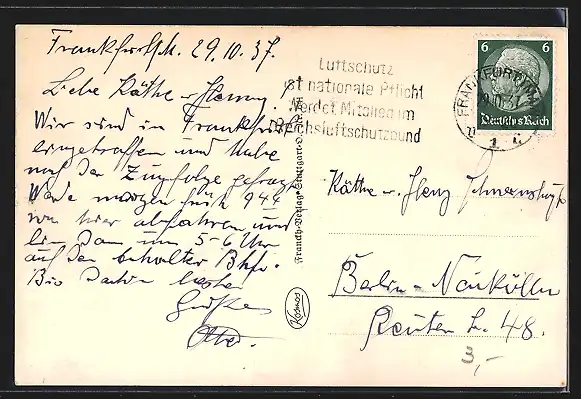 Frankfurt/M. 29.10.37.
Liebe Käthe u. Henry!
Wir sind in Frankfurt
eingetroffen und habe
nach der Zugfolge gefragt
Werde morgen früh 9 44
von hier abfahren und
bin dann um 5-6 Uhr
auf dem Anhalter Bhf.
Bis dahin beste
Grüße
Luftschutz
ist nationale Pflicht
Werdet Mitglied im
Reichsluftschutzbund
6 6
Deutsches Reich
FRANKFURT
Franckh-Verlag Stuttgart-O.
Kosmos
Käthe u. Henry
Berlin-Neukölln
Reuter 48.
3,-